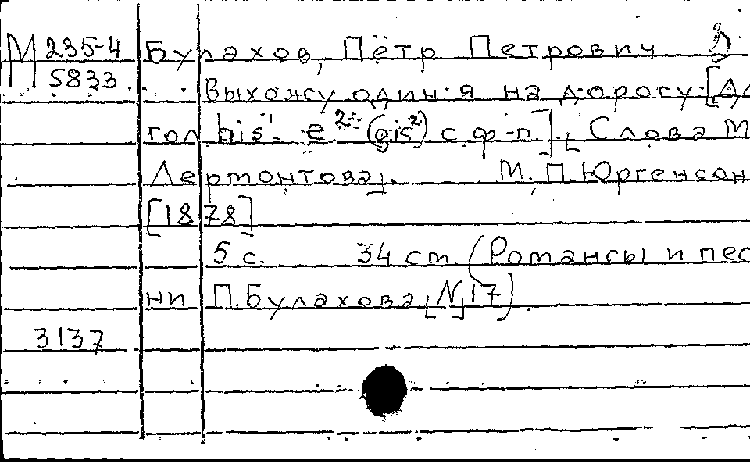 М 235-4 Булахов, Пётр Петрович
5833 Выхожу один я на дорогу. [Дл
гол. his¹- e² (gis²) с ф-п.]. [Слова М
Лермонтова]. М. П. Юргенсон
[1878]
5 с. 34 см. (Романсы и пес-
ни П. Булахова [N] 17).
3137